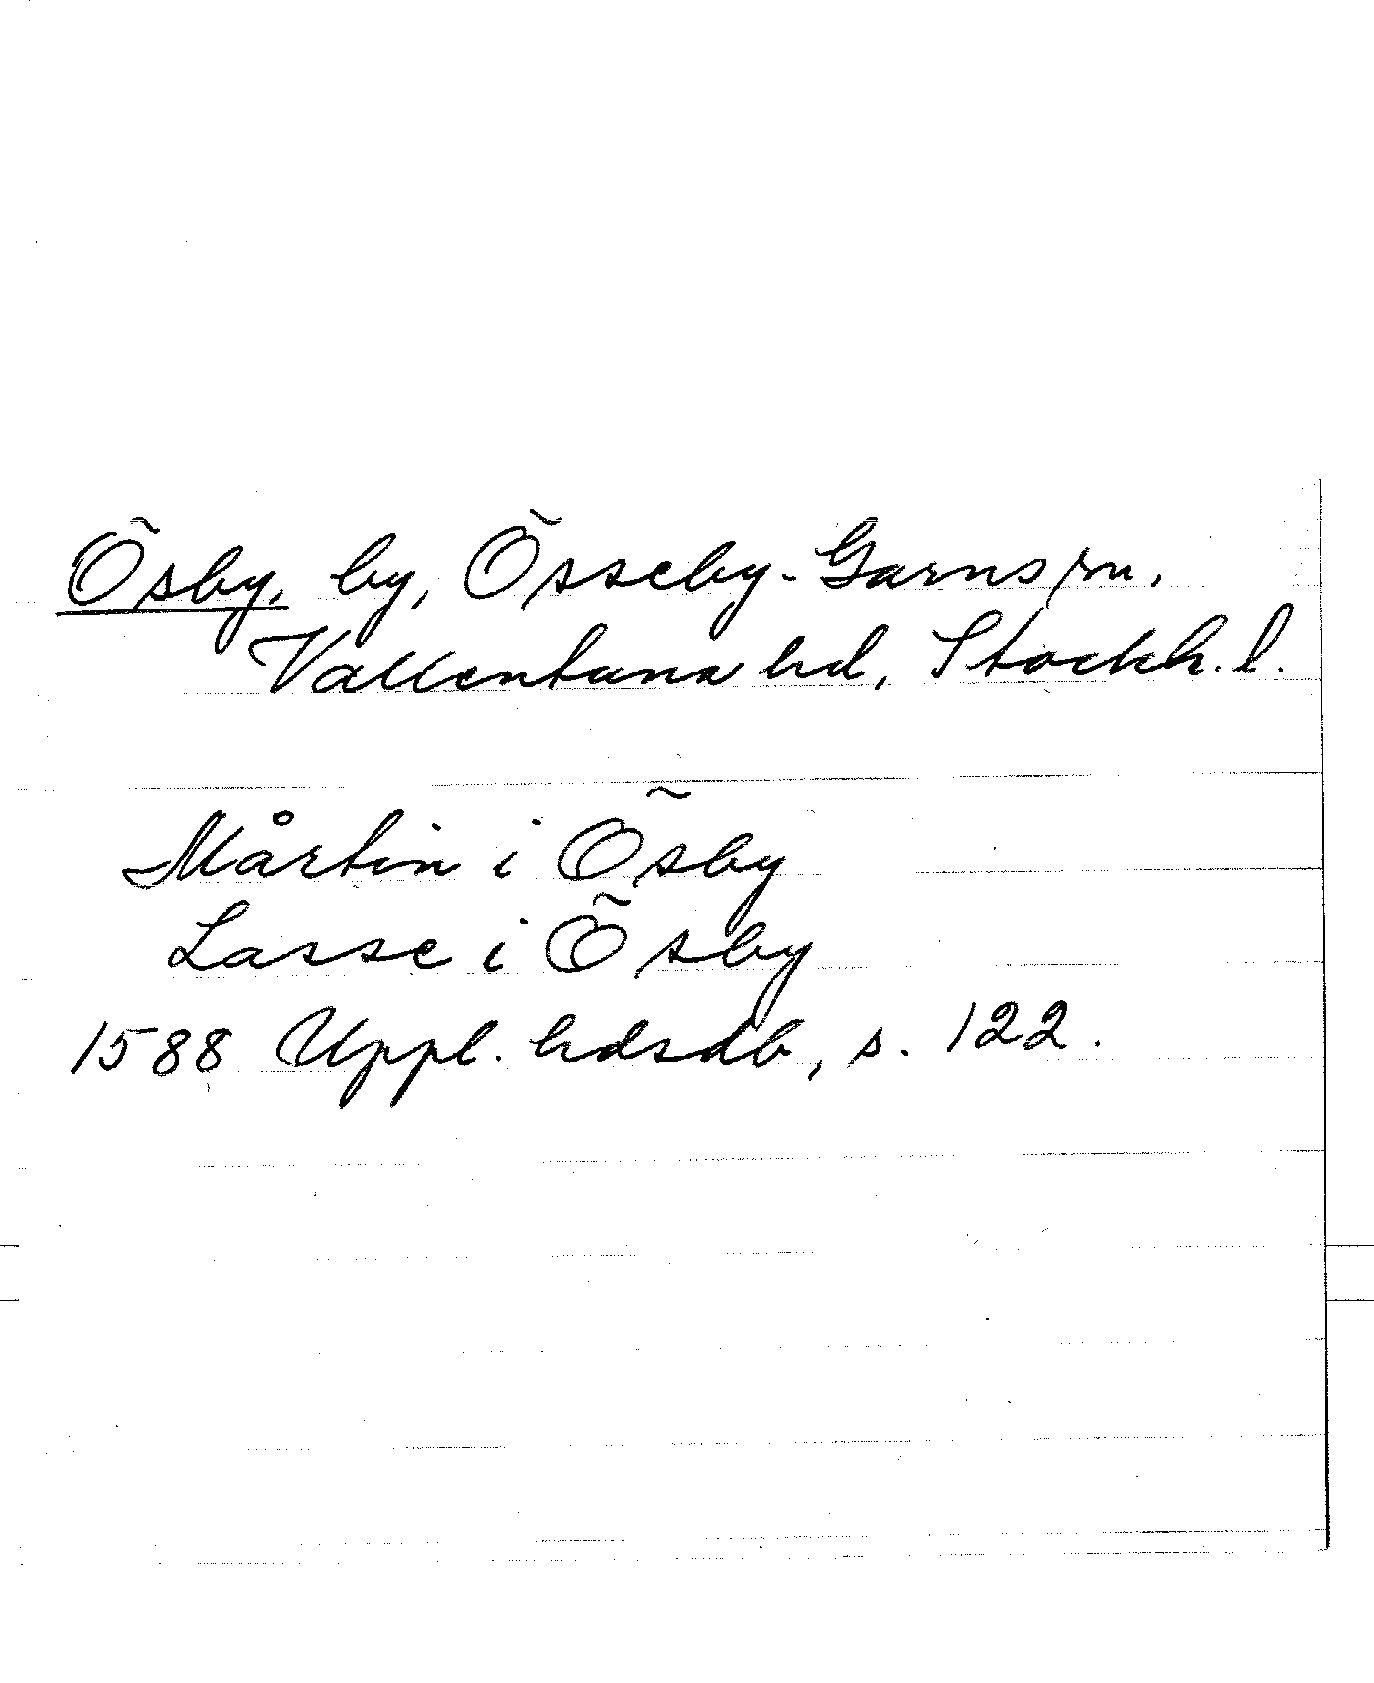 Ösby, by, Össeby-Garns sn,
Vallentuna hd, Stockh. l.
Mårtin i Ösby
Lasse i Ösby
1588 Uppl. hdsdb, s. 122.